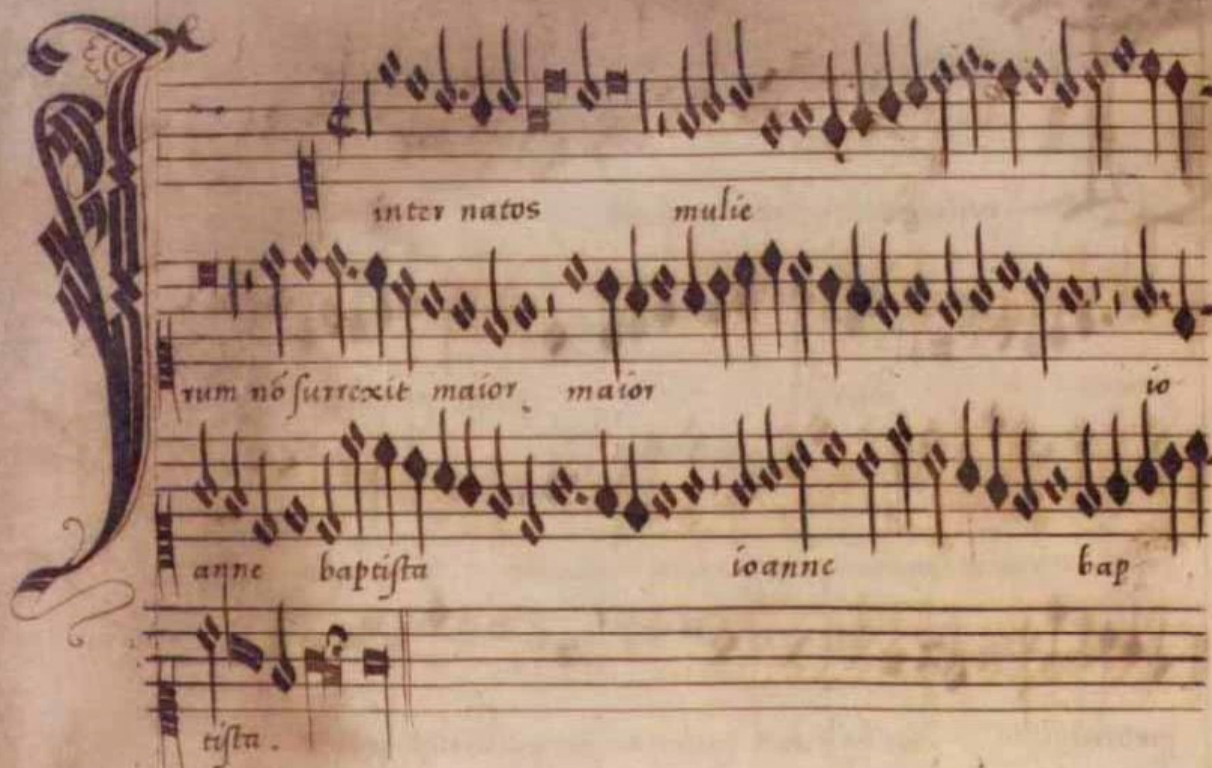 inter natos mulie
rum nõ ſurrexit maior maior io
anne baptiſta ioanne bap
tiſta.